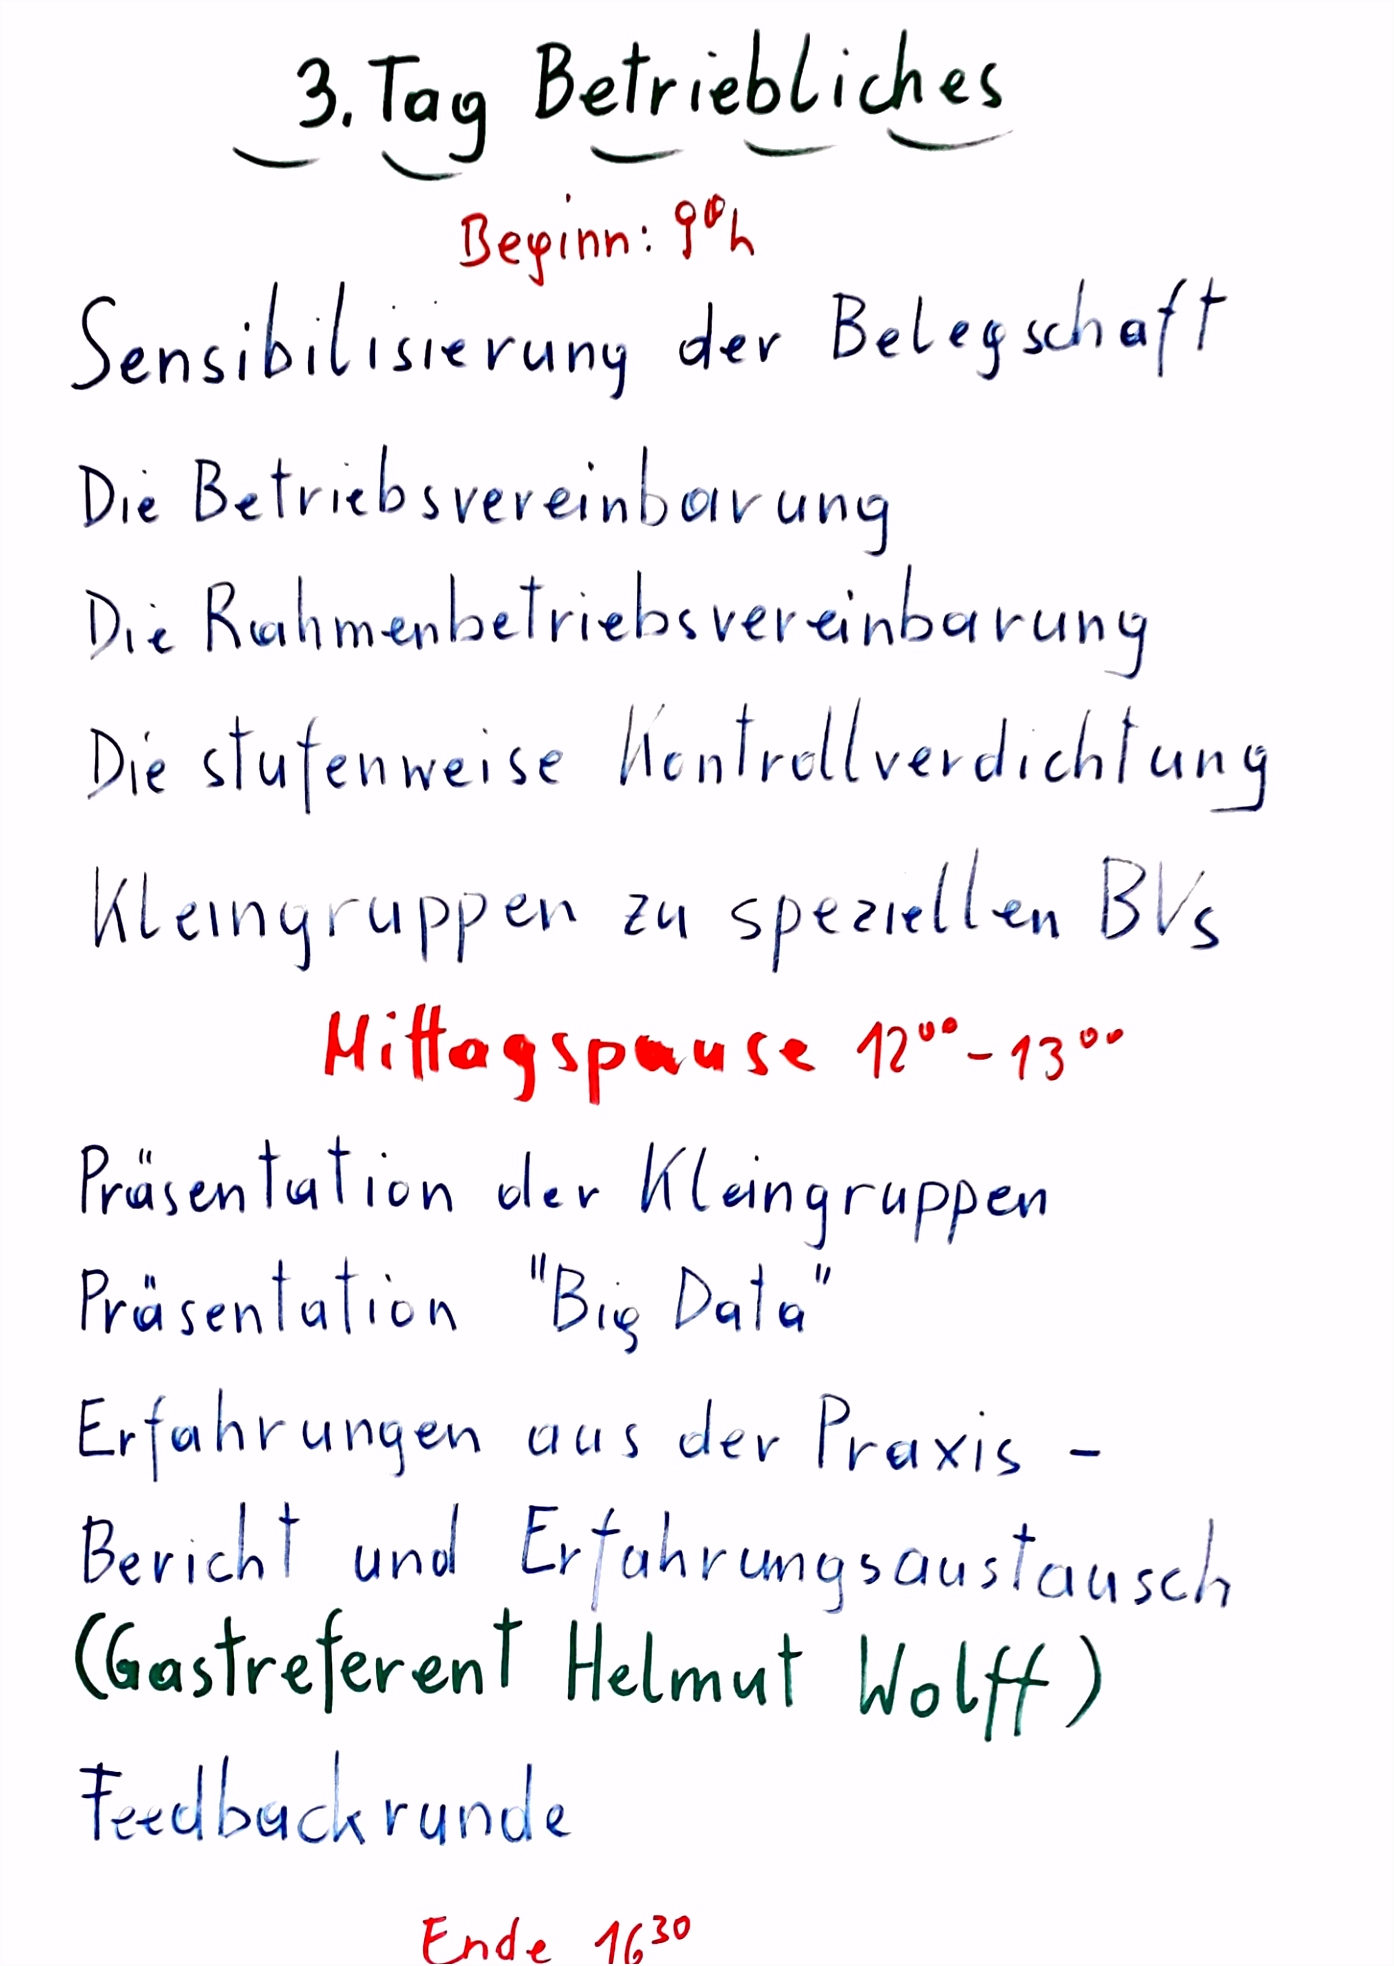 3. Tag Betriebliches
Beginn: 9⁰⁰h
Sensibilisierung der Belegschaft
Die Betriebsvereinbarung
Die Rahmenbetriebsvereinbarung
Die stufenweise Kontrollverdichtung
Kleingruppen zu speziellen BVs
Mittagspause 12⁰⁰-13⁰⁰
Präsentation der Kleingruppen
Präsentation "Big Data"
Erfahrungen aus der Praxis -
Bericht und Erfahrungsaustausch
(Gastreferent Helmut Wolff)
Feedbackrunde
Ende 16³⁰